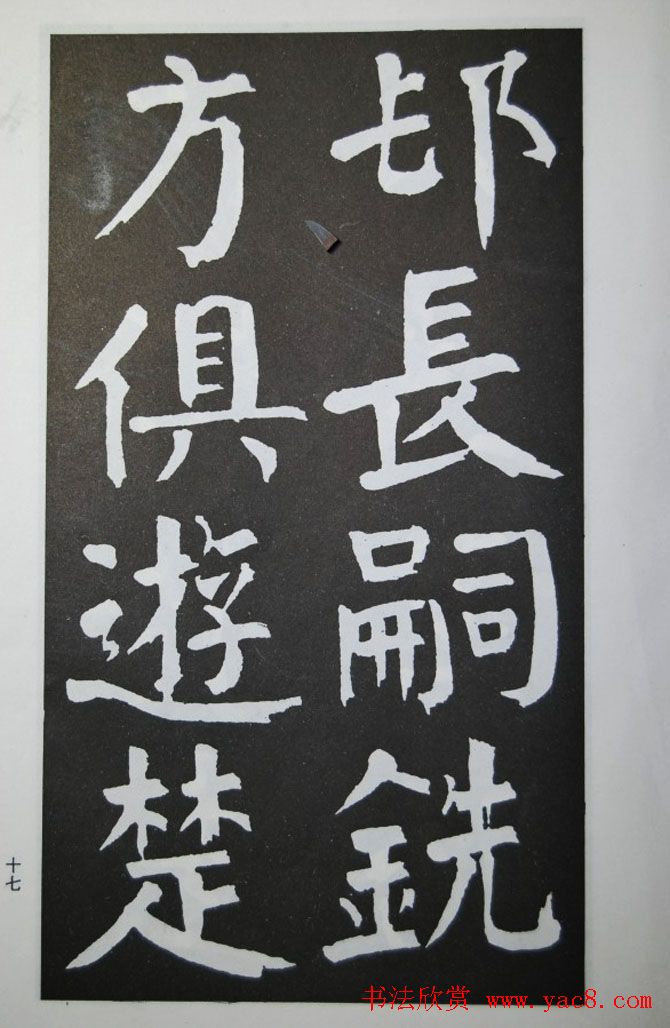 邨長嗣銑
方俱遊楚
十七
书法欣赏 www.yac8.com